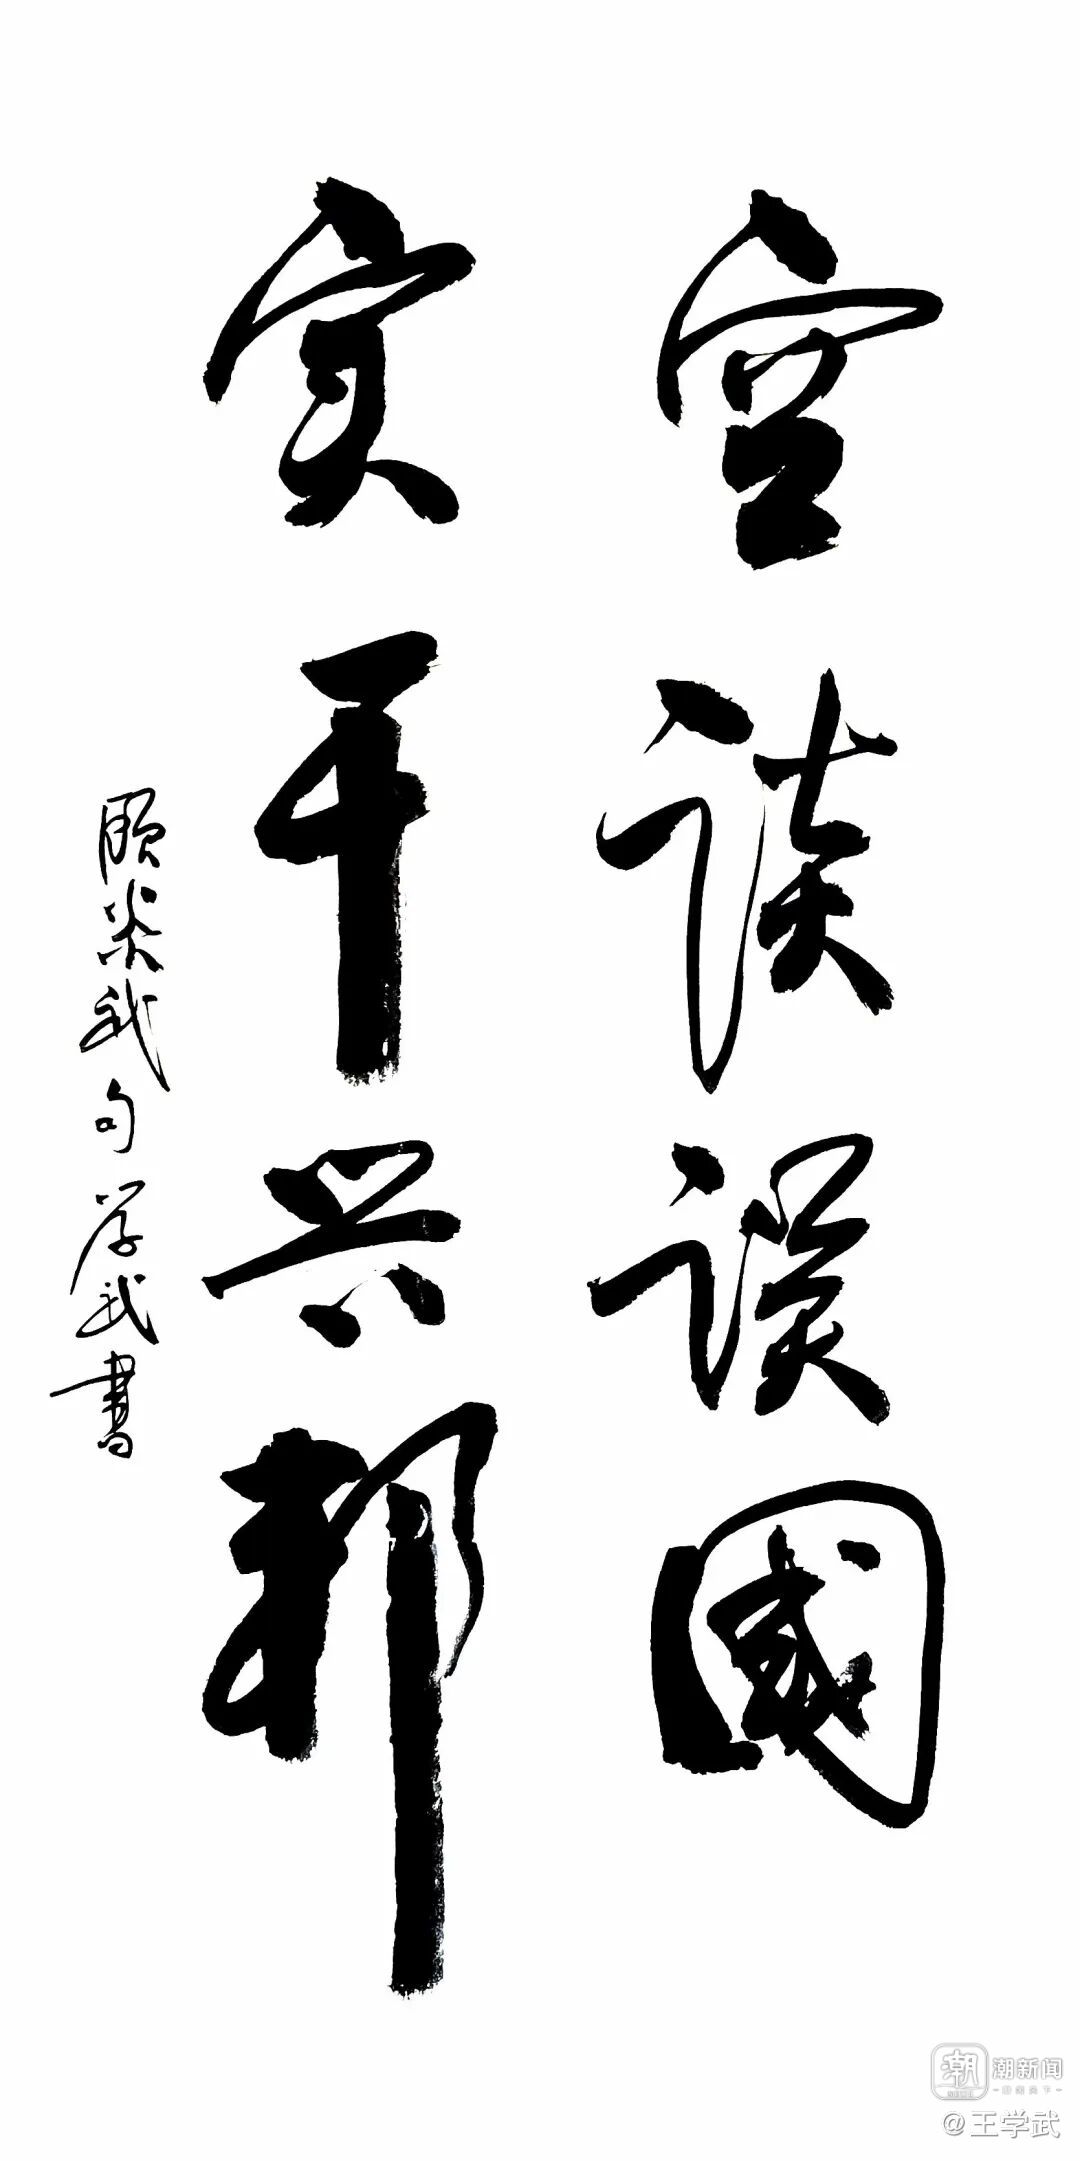 空谈误國
实干兴邦
顾炎武句学武書
潮新闻
@王学武